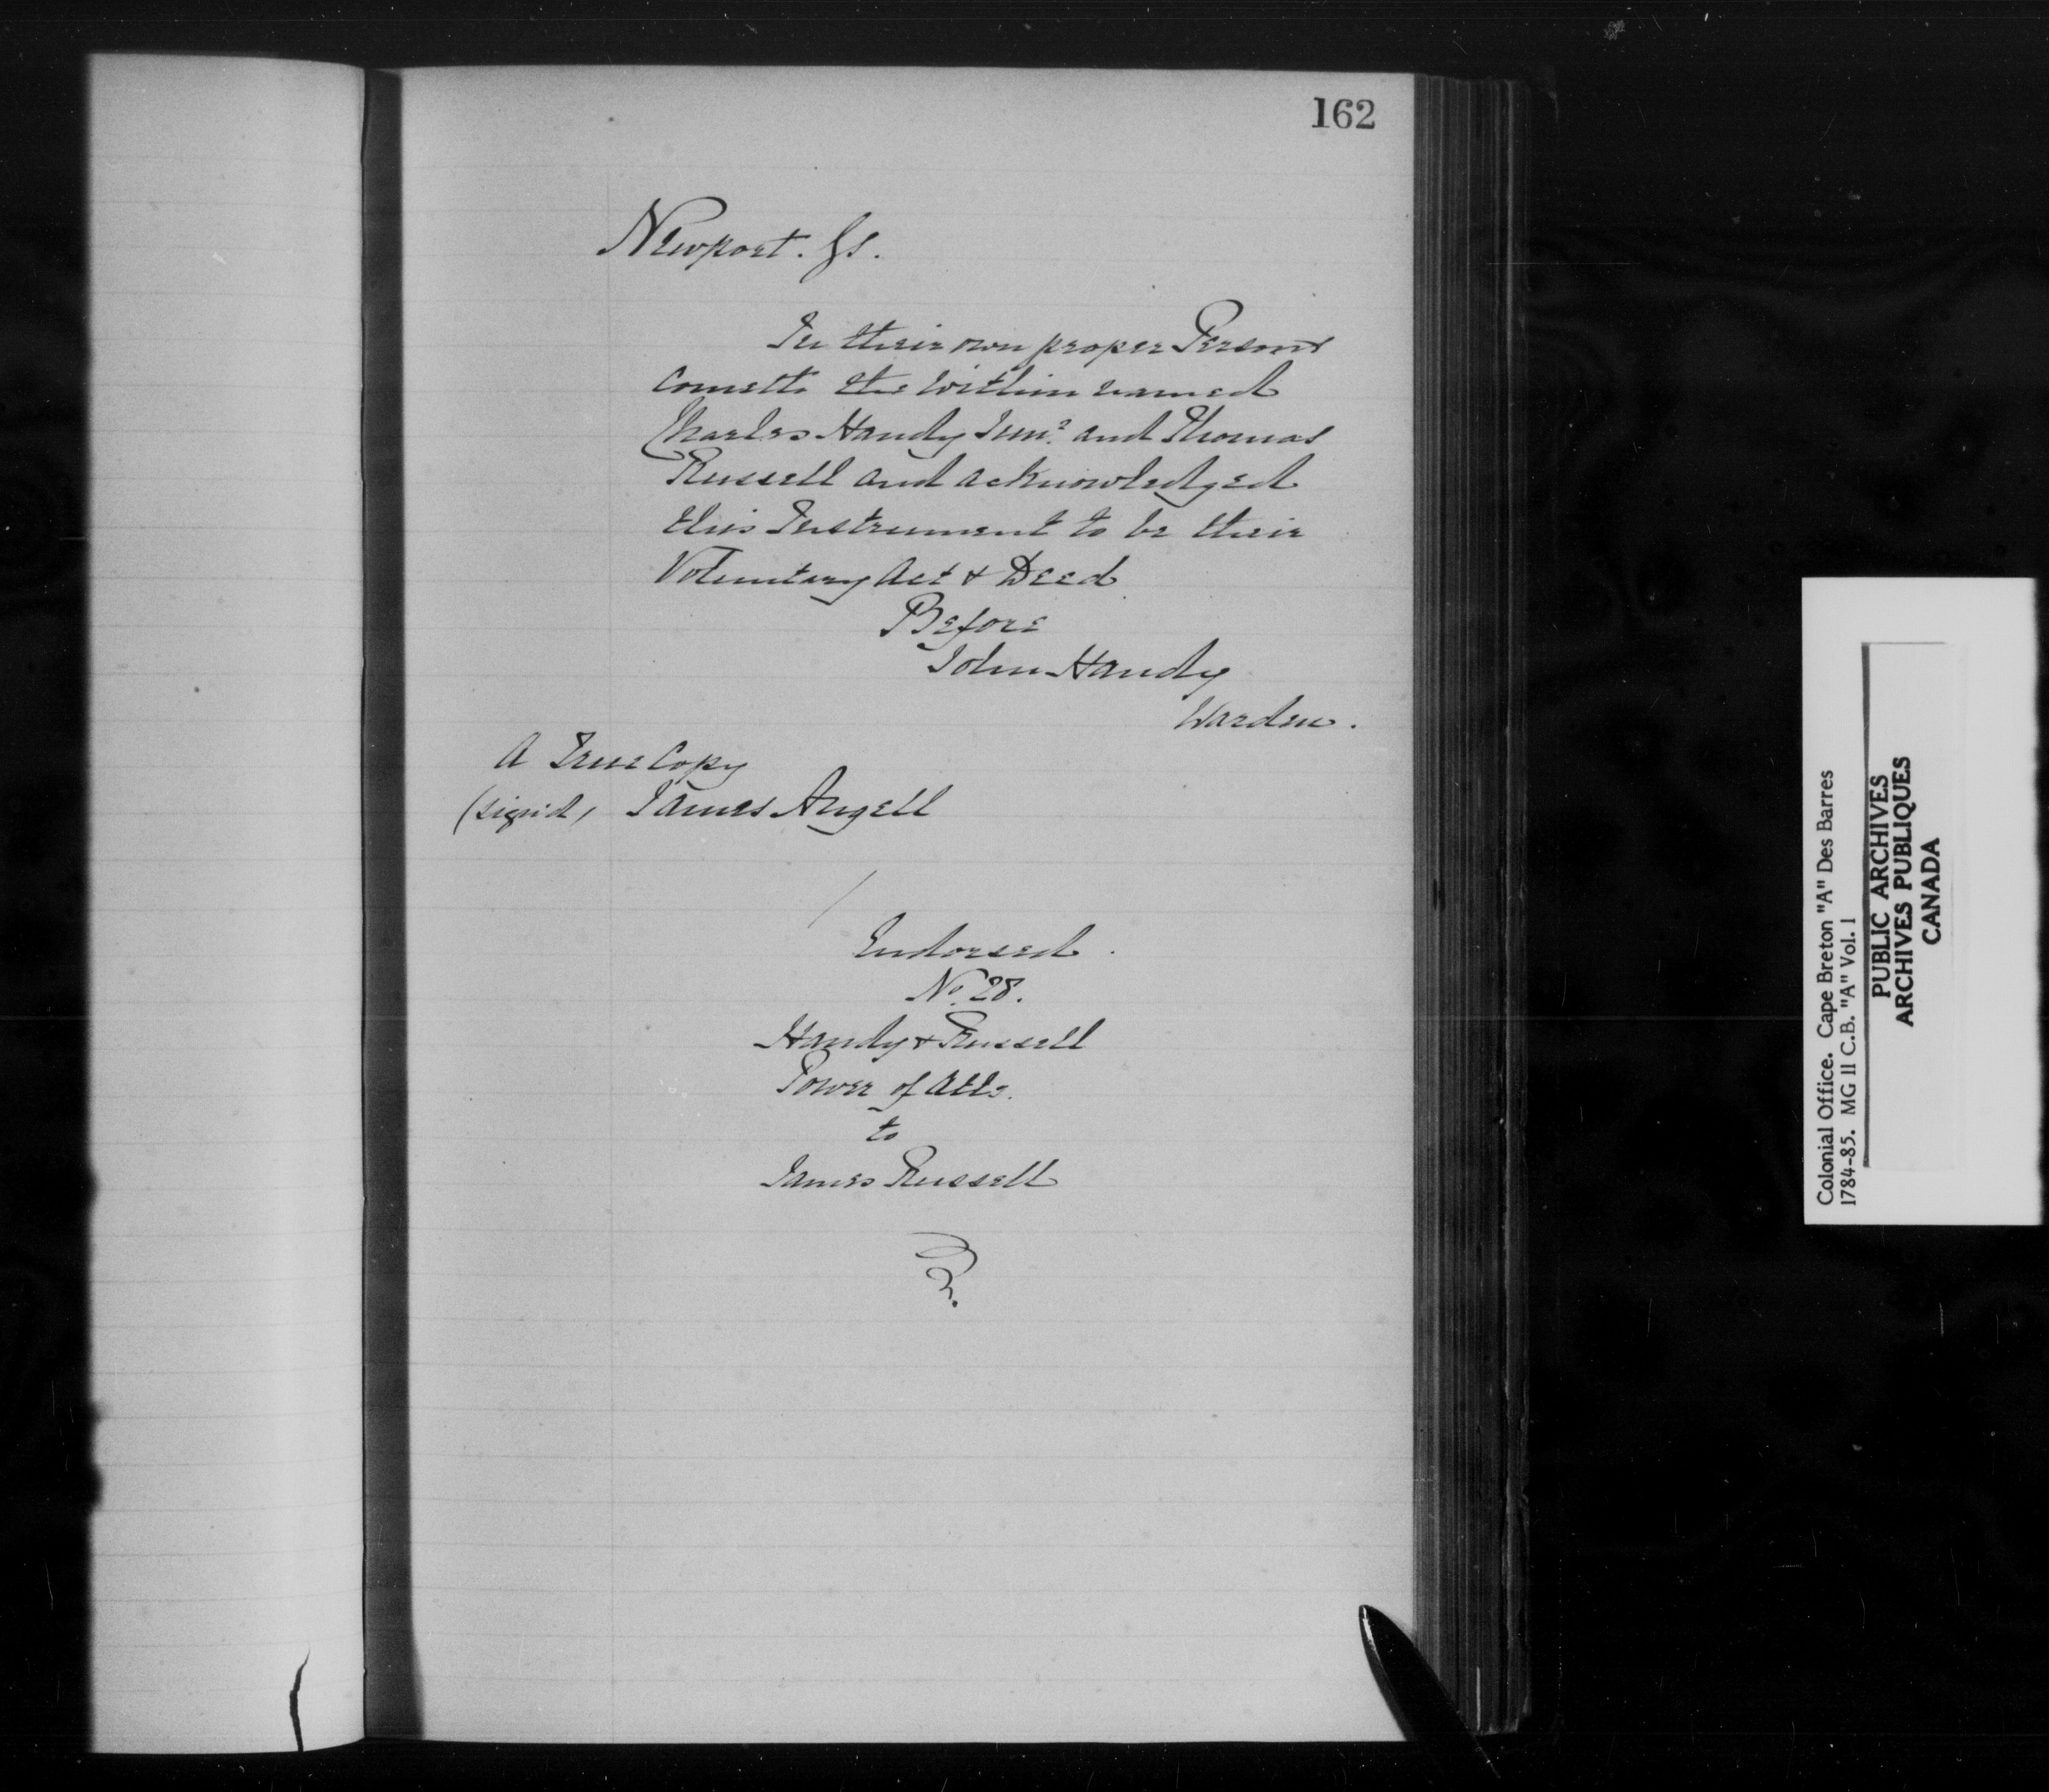 162
Newport. Ss.
In their own proper Persons
cometh the within named
Charles Handy Junr. and Thomas
Russell and acknowledged
this Instrument to be their
Voluntary Act & Deed
Before
John Handy
Warden.
A True Copy
(signd, James Angell
Endorsed.
No. 28.
Handy & Russell
Power of Atty.
to
James Russell
Colonial Office. Cape Breton "A" Des Barres
1784-85. MG 11 C.B. "A" Vol. 1
PUBLIC ARCHIVES
ARCHIVES PUBLIQUES
CANADA